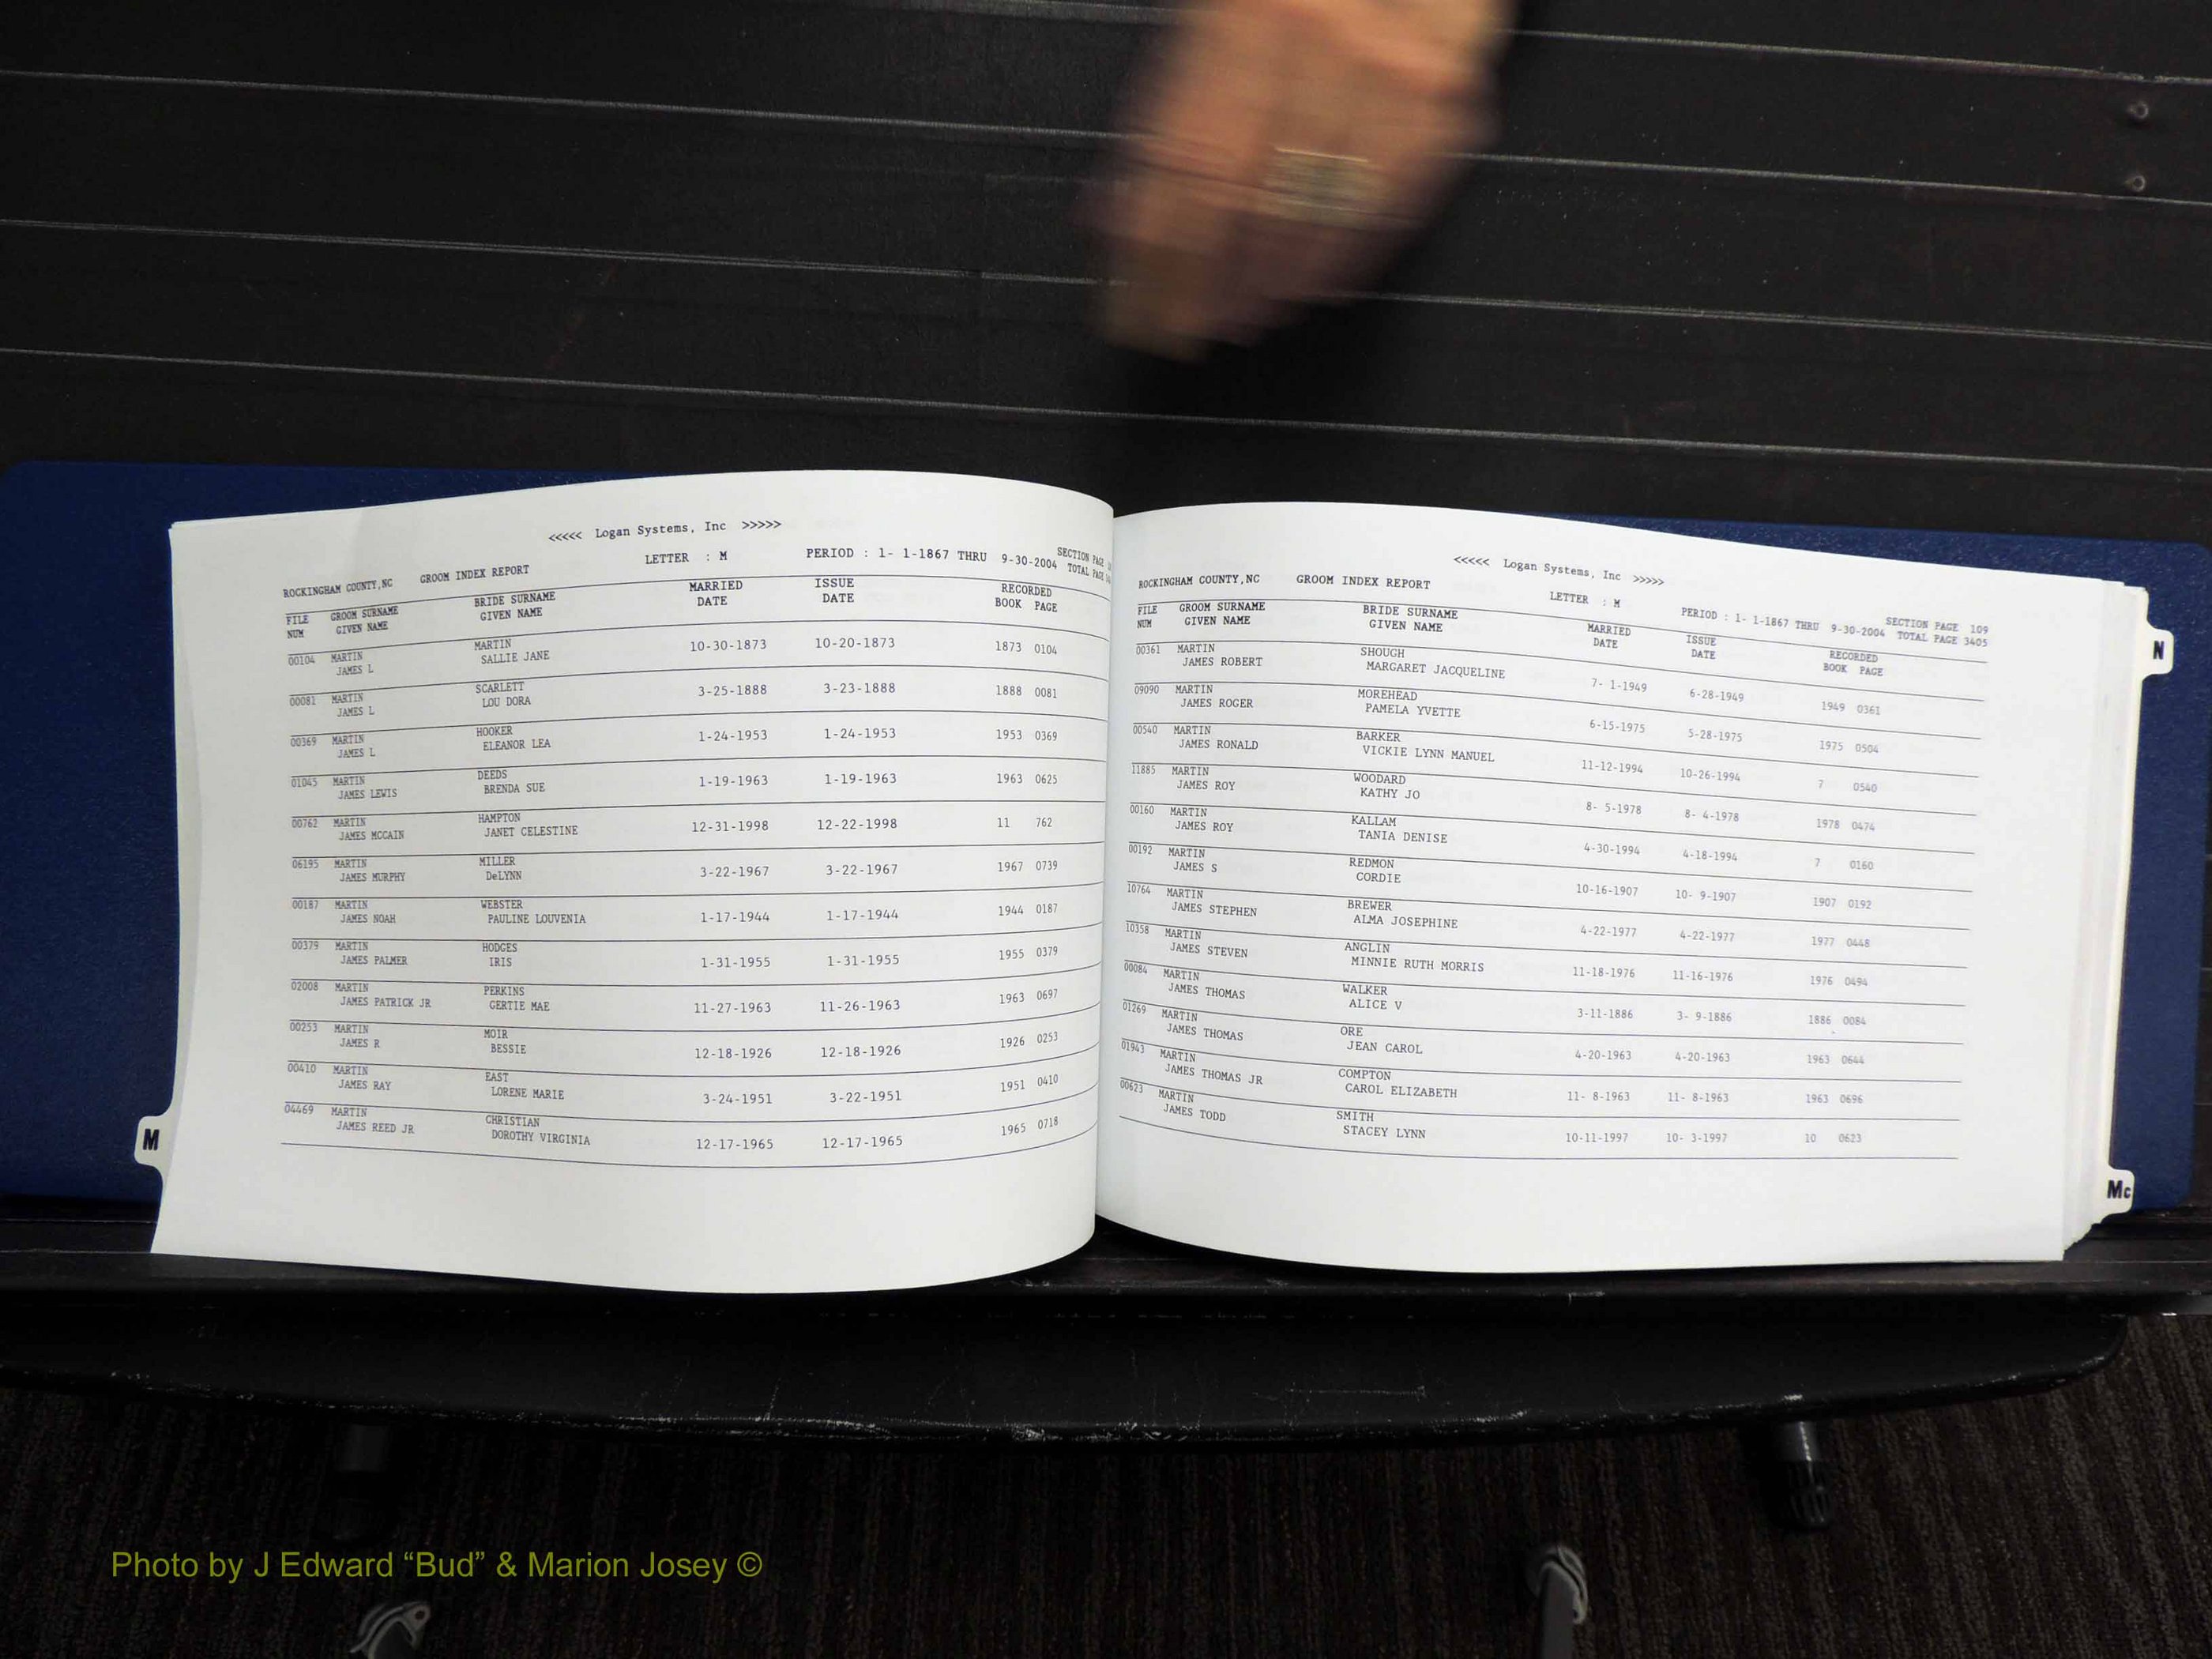 <<<<< Logan Systems, Inc >>>>>
ROCKINGHAM COUNTY,NC GROOM INDEX REPORT LETTER : M PERIOD : 1- 1-1867 THRU 9-30-2004 SECTION PAGE
TOTAL PAGE
FILE GROOM SURNAME BRIDE SURNAME MARRIED ISSUE RECORDED
NUM GIVEN NAME GIVEN NAME DATE DATE BOOK PAGE
00104 MARTIN MARTIN 10-30-1873 10-20-1873 1873 0104
JAMES L SALLIE JANE
00081 MARTIN SCARLETT 3-25-1888 3-23-1888 1888 0081
JAMES L LOU DORA
00369 MARTIN HOOKER 1-24-1953 1-24-1953 1953 0369
JAMES L ELEANOR LEA
01045 MARTIN DEEDS 1-19-1963 1-19-1963 1963 0625
JAMES LEWIS BRENDA SUE
00762 MARTIN HAMPTON 12-31-1998 12-22-1998 11 762
JAMES MCCAIN JANET CELESTINE
06195 MARTIN MILLER 3-22-1967 3-22-1967 1967 0739
JAMES MURPHY DeLYNN
00187 MARTIN WEBSTER 1-17-1944 1-17-1944 1944 0187
JAMES NOAH PAULINE LOUVENIA
00379 MARTIN HODGES 1-31-1955 1-31-1955 1955 0379
JAMES PALMER IRIS
02008 MARTIN PERKINS 11-27-1963 11-26-1963 1963 0697
JAMES PATRICK JR GERTIE MAE
00253 MARTIN MOIR 12-18-1926 12-18-1926 1926 0253
JAMES R BESSIE
00410 MARTIN EAST 3-24-1951 3-22-1951 1951 0410
JAMES RAY LORENE MARIE
04469 MARTIN CHRISTIAN 12-17-1965 12-17-1965 1965 0718
JAMES REED JR DOROTHY VIRGINIA
M
<<<<< Logan Systems, Inc >>>>>
ROCKINGHAM COUNTY,NC GROOM INDEX REPORT LETTER : M PERIOD : 1- 1-1867 THRU 9-30-2004 SECTION PAGE 109
TOTAL PAGE 3405
FILE GROOM SURNAME BRIDE SURNAME MARRIED ISSUE RECORDED
NUM GIVEN NAME GIVEN NAME DATE DATE BOOK PAGE
00361 MARTIN SHOUGH 7- 1-1949 6-28-1949 1949 0361
JAMES ROBERT MARGARET JACQUELINE
09090 MARTIN MOREHEAD 6-15-1975 5-28-1975 1975 0504
JAMES ROGER PAMELA YVETTE
00540 MARTIN BARKER 11-12-1994 10-26-1994 7 0540
JAMES RONALD VICKIE LYNN MANUEL
11885 MARTIN WOODARD 8- 5-1978 8- 4-1978 1978 0474
JAMES ROY KATHY JO
00160 MARTIN KALLAM 4-30-1994 4-18-1994 7 0160
JAMES ROY TANIA DENISE
00192 MARTIN REDMON 10-16-1907 10- 9-1907 1907 0192
JAMES S CORDIE
10764 MARTIN BREWER 4-22-1977 4-22-1977 1977 0448
JAMES STEPHEN ALMA JOSEPHINE
10358 MARTIN ANGLIN 11-18-1976 11-16-1976 1976 0494
JAMES STEVEN MINNIE RUTH MORRIS
00084 MARTIN WALKER 3-11-1886 3- 9-1886 1886 0084
JAMES THOMAS ALICE V
01269 MARTIN ORE 4-20-1963 4-20-1963 1963 0644
JAMES THOMAS JEAN CAROL
01943 MARTIN COMPTON 11- 8-1963 11- 8-1963 1963 0696
JAMES THOMAS JR CAROL ELIZABETH
00623 MARTIN SMITH 10-11-1997 10- 3-1997 10 0623
JAMES TODD STACEY LYNN
N
Mc
Photo by J Edward “Bud” & Marion Josey ©